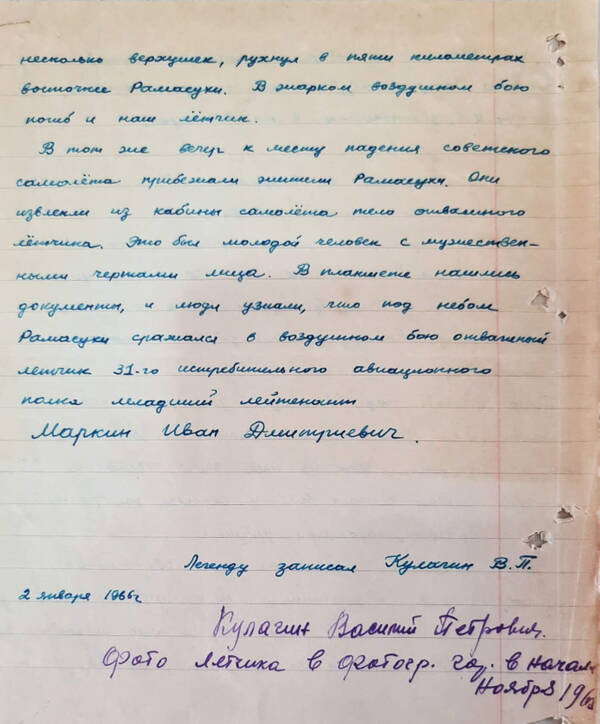 несколько верхушек, рухнул в пяти километрах
восточнее Рамасухи. В жарком воздушном бою
погиб и наш лётчик.
В тот же вечер к месту падения советского
самолёта прибежали жители Рамасухи. Они
извлекли из кабины самолёта тело отважного
лётчика. Это был молодой человек с мужествен-
ными чертами лица. В планшете нашлись
документы, и люди узнали, что под небом
Рамасухи сражался в воздушном бою отважный
летчик 31-го истребительного авиационного
полка младший лейтенант
Маркин Иван Дмитриевич.
Легенду записал Кулагин В.П.
2 января 1966г
Кулагин Василий Петрович.
Фото летчика в фотогр. газ. в начале
Ноября